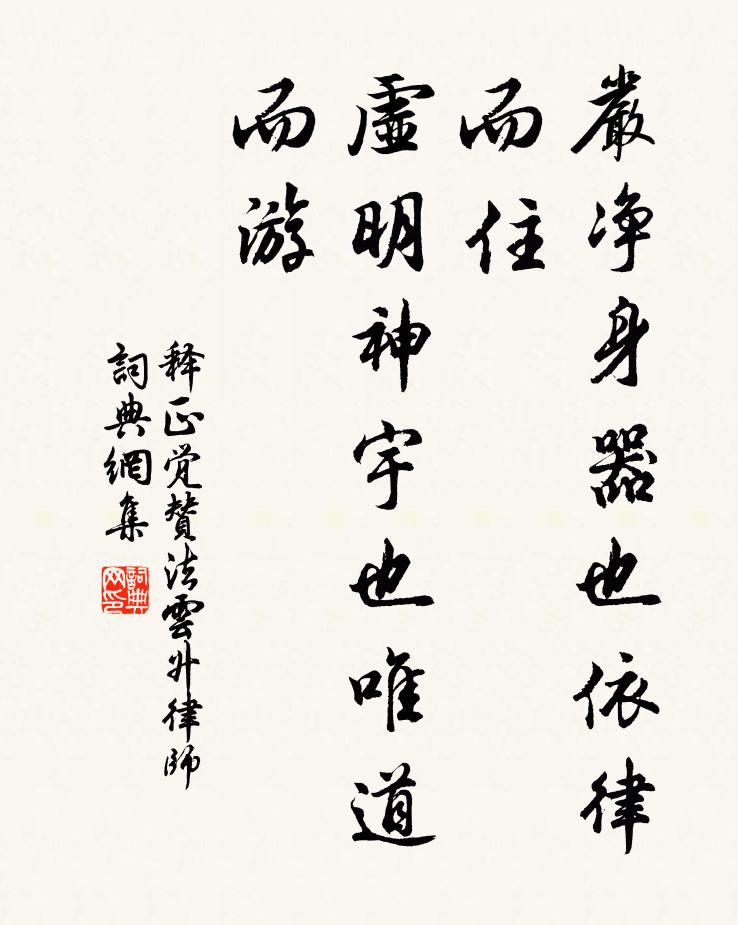 嚴净身器也依律
而住
虛明神宇也唯道
而游
释正觉贊法雲升律師
詞典網集
詞典
网印